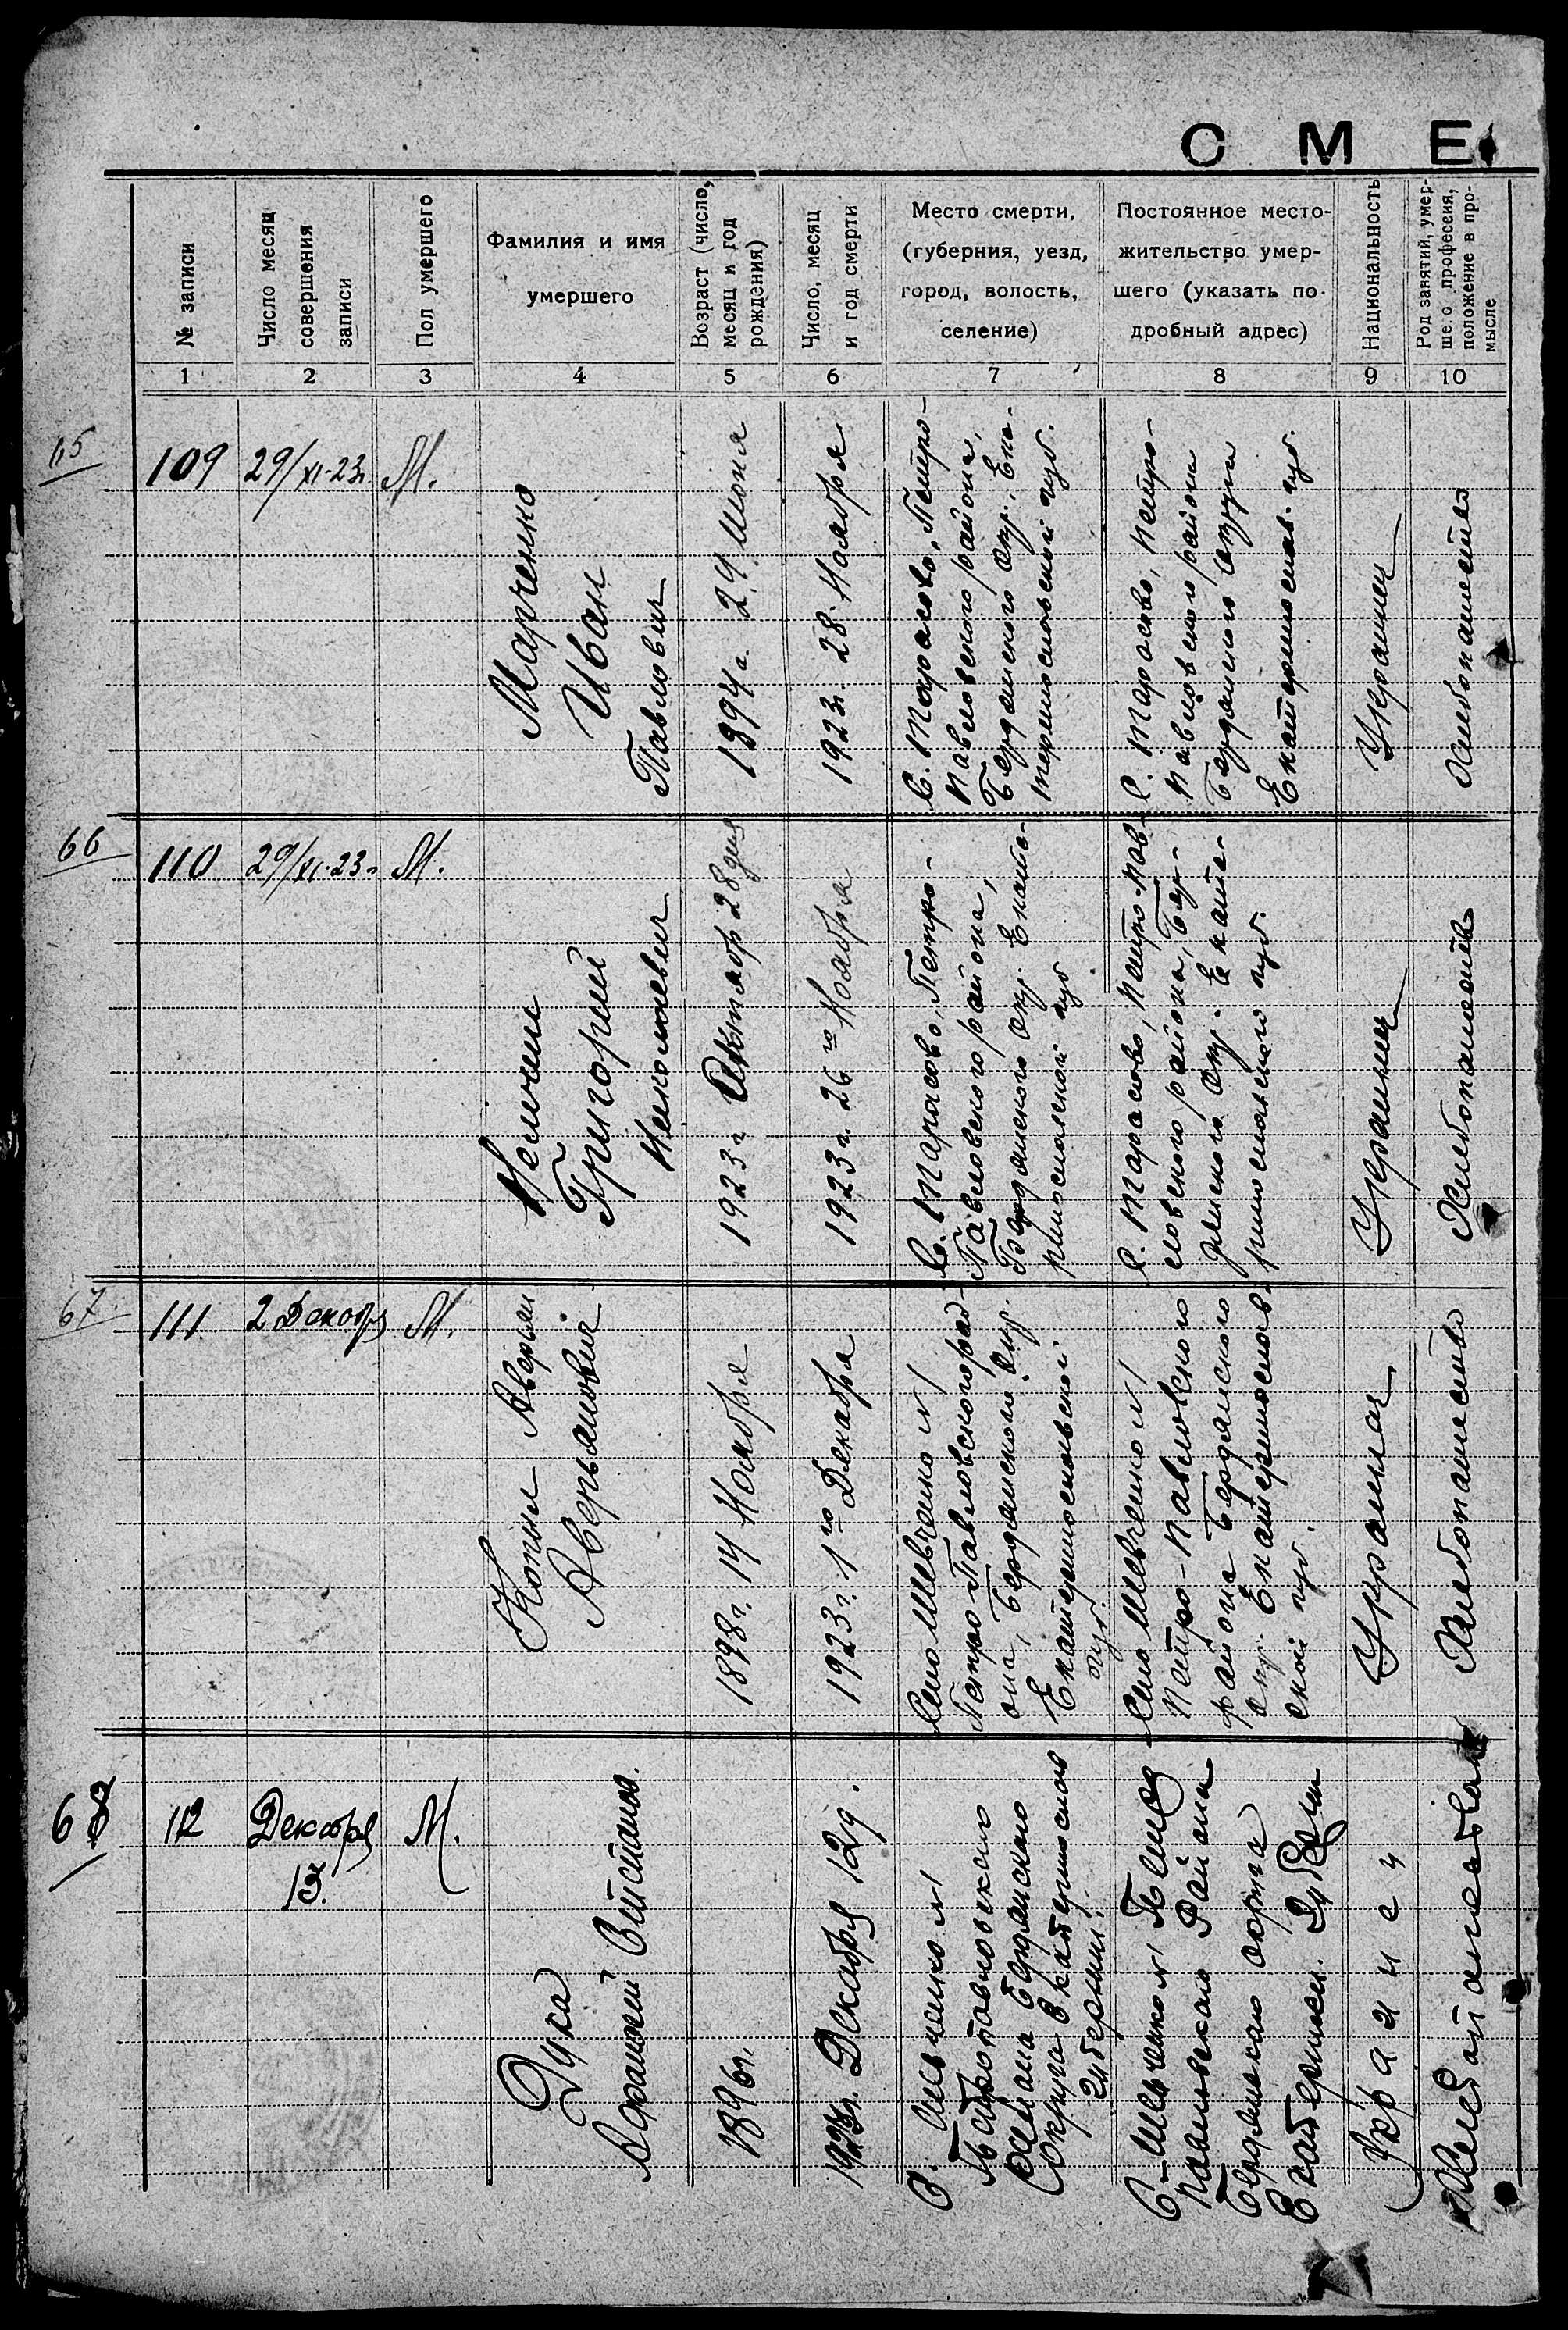 С М Е
№ записи
Число месяц
совершения
записи
Пол умершего
Фамилия и имя
умершего
Возраст (число,
месяц и год
рождения)
Число, месяц
и год смерти
Место смерти,
(губерния, уезд,
город, волость,
селение)
Постоянное место-
жительство умер-
шего (указать по-
дробный адрес)
Национальность
Род занятий, умер-
ше.о профессия,
положение в про-
мысле
1 2 3 4 5 6 7 8 9 10
65
109
29/XI-23г.
М.
Марченко
Иван
Павлович
1894г. 24 Июня
1923г. 28 Ноября
С. Тарасовка, Петро-
Павловского района,
Бердянского окр. Ека-
теринославской губ.
С. Тарасовка, Петро-
Павловского района
Бердянского округа
Екатеринослав. губ.
Украинец
Хлебопашество
66
110
29/XI-23г.
М.
Григорий
Николаевич
1923г. Октябр 28 дня
1923г. 26го Ноября
С. Тарасовка, Петро-
Павловского района,
Бердянского окр. Екате-
ринославской губ.
С. Тарасовка, Петро-Пав-
ловского района, Бер-
дянского окр. Екате-
ринославской губ.
Украинец
Хлебопашество
67
111
2 Декабр
М.
Аверьян
Аверьянович
1898г. 14 Ноября
1923г. 1го Декабря
Село Шевченко №1
Петро-Павловского рай-
она, Бердянского окр.
Екатеринославской
губ.
Село Шевченко №1
Петро-Павловского
района Бердянского
окр. Екатеринослав-
ской губ.
Украинец
Хлебопашество
68
112
Декабря
13.
М.
1896г.
1923г. Декабря 12д.
С. Шевченко №1
Петропавловского
Района Бердянского
Округа Екатеринослав
Губернии.
С. Шевченко №1 Петро
Павловского Района
Бердянского округа
Екатериносл. Губерн
Украинец